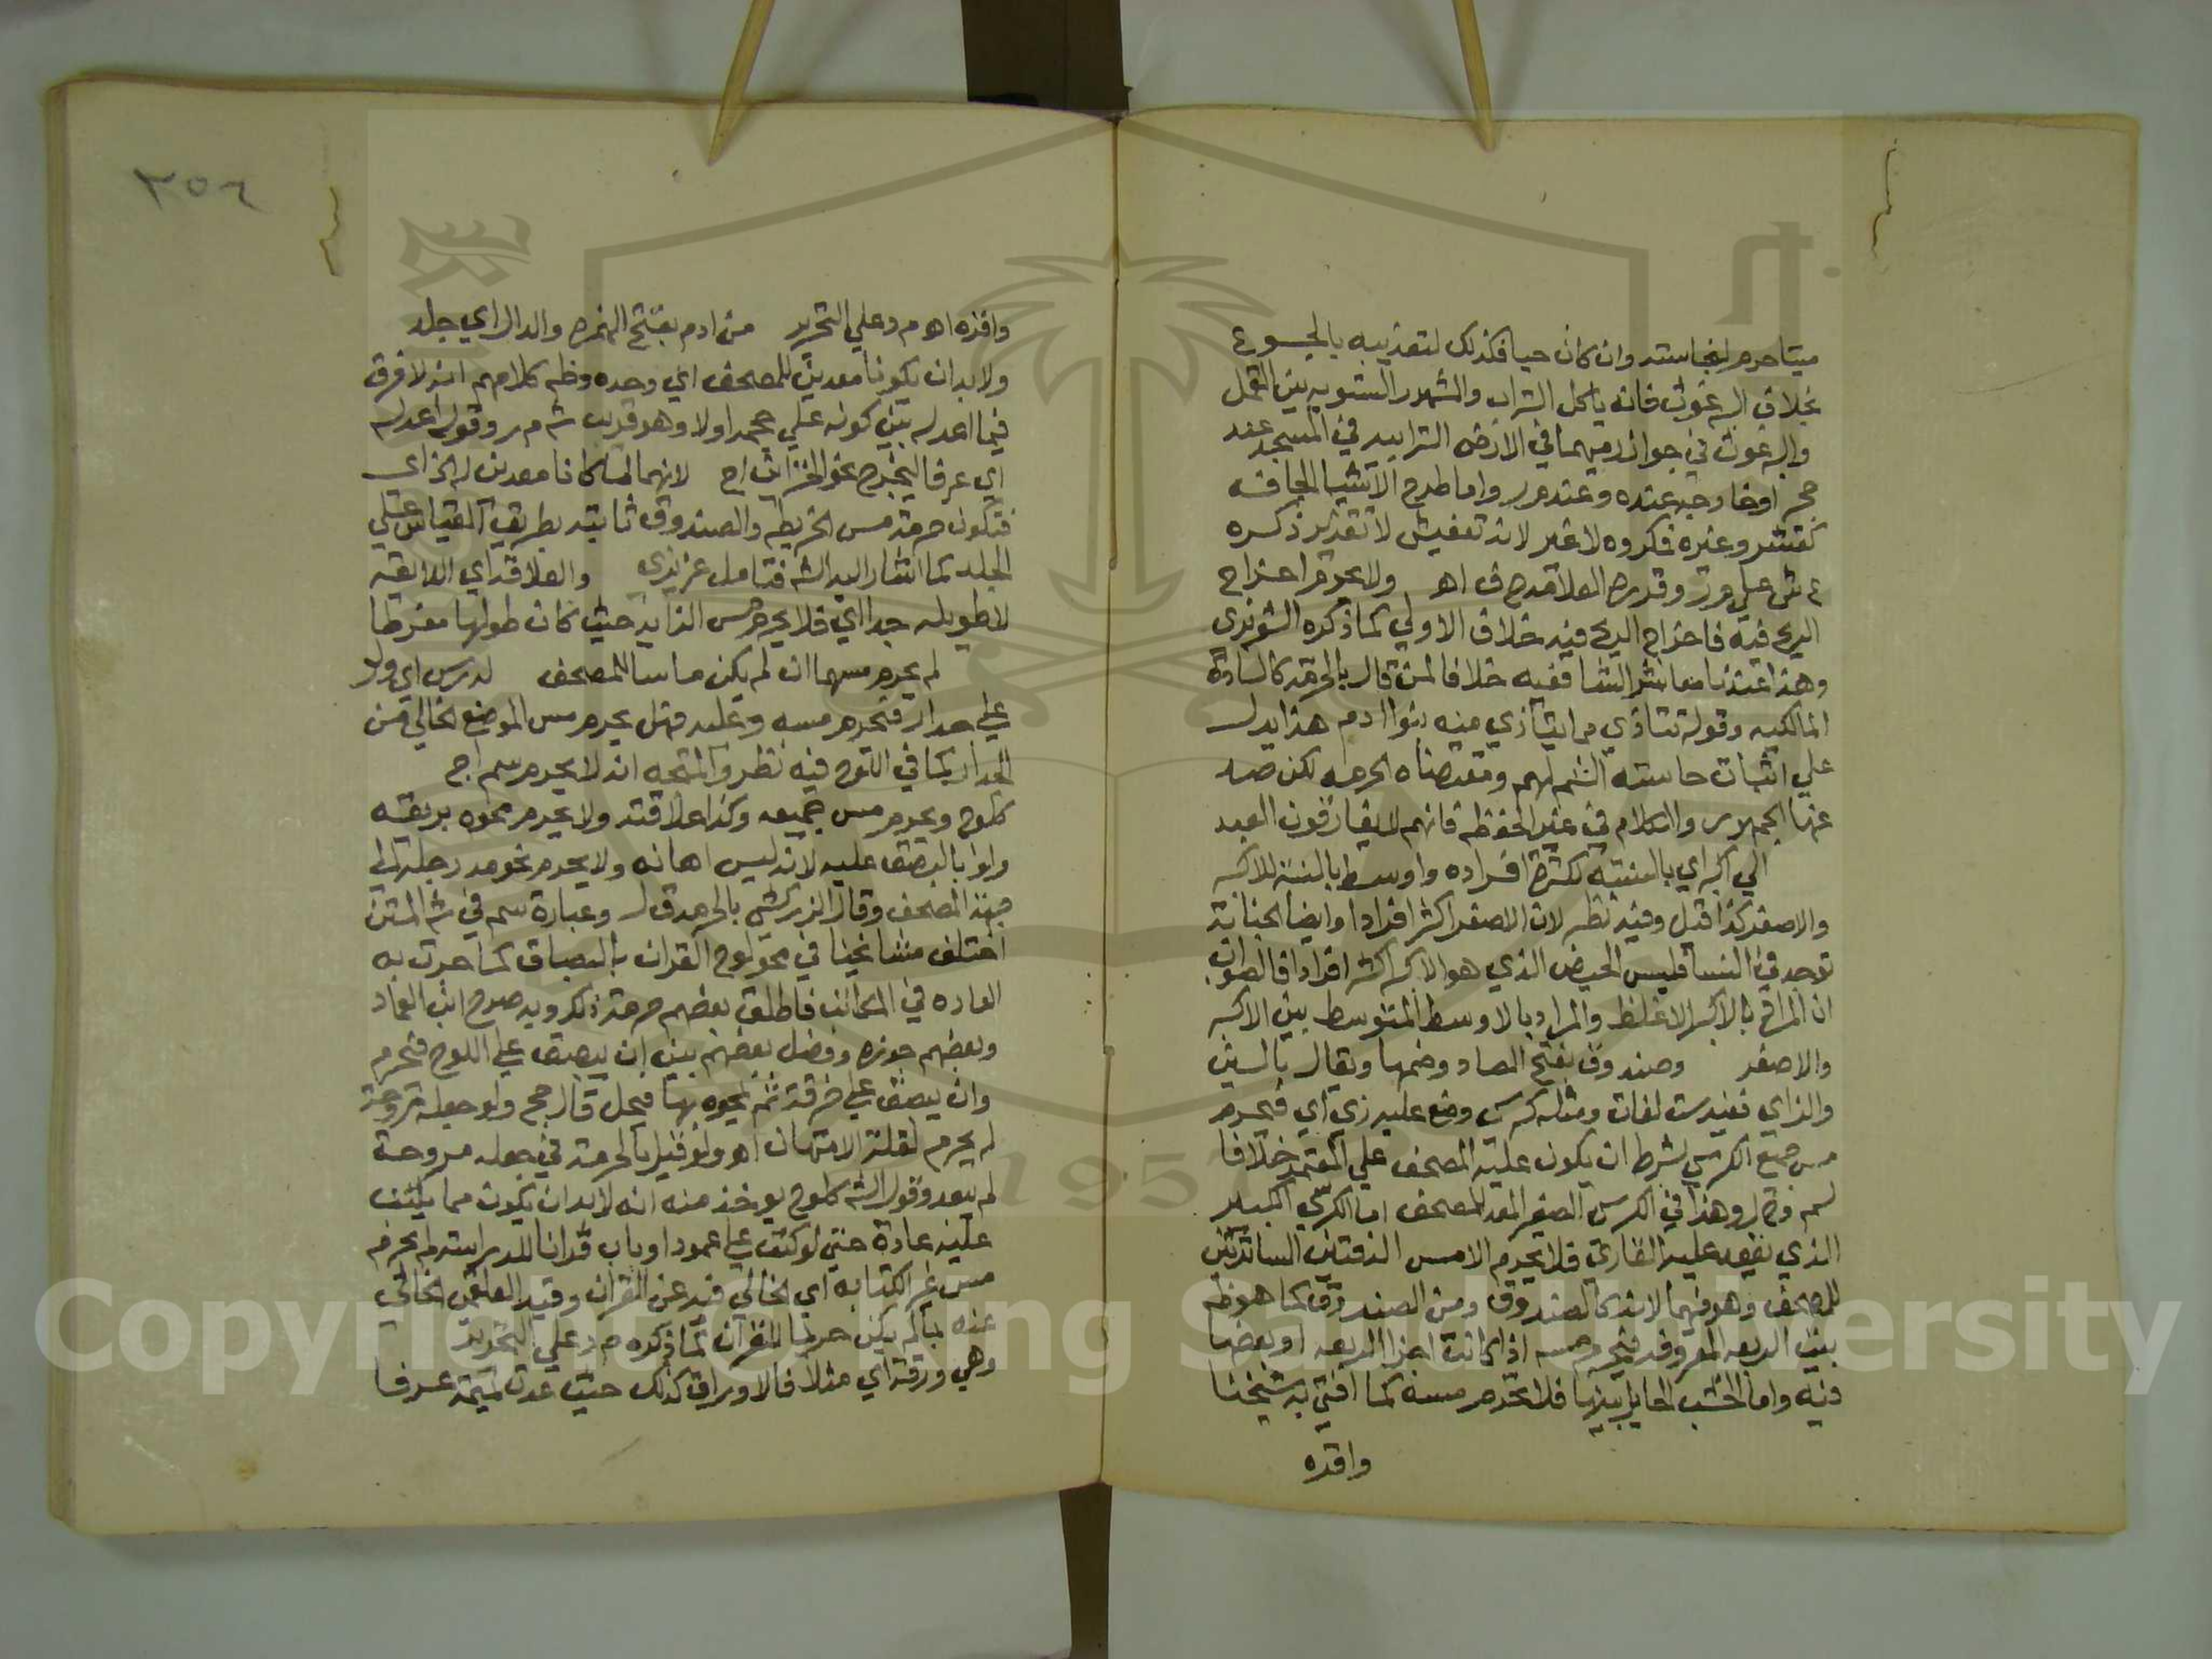 ميتا حرم لنجاسته وان كان حيا فكذلك لتعذيبه بالجوع
بخلاف البرغوث فانه ياكل التراب والمشهور التسويه بين القمل
والبرغوث في جواز رميهما في الارض الترابيه في المسجد عند
حجر اوخارجه عنده وعند مر واما طرح الاشيا الجافه
كقشر وغيره فمكروه لا غير لانه تعفيش لا تقذير ذكره
ع ش علي مر وقرره العلامه ح ف اهـ ولا يحرم اخراج
الريح فيه فاخراج الريح فيه خلاف الاولي كما ذكره الشوبري
وهذا عندنا معاشر الشافعيه خلافا لمن قال بالحرمة كالسادة
المالكيه وقوله تتاذي مما يتاذي منه بنوا ادم هذا يدل
علي اثبات حاسته الشم لهم ومقتضاه الحرمه لكن صد
عنها الجمهور والكلام في غير الحفظه فانهم لا يفارقون العبد
الي اكبر اي بالنسبة لكثرة افراده واوسط بالنسبة للاكبر
والاصغر كذا قيل وفيه نظر لان الاصغر اكثر افرادا وايضا الجنابة
توجد في النسا فليس الحيض الذي هو الاكبر اكثر افرادا فالصواب
ان المراد بالاكبر الاغلظ والمراد بالاوسط المتوسط بين الاكبر
والاصغر وصندوق بفتح الصاد وضمها ويقال بالسين
والزاي ففيه ست لغات ومثله كرسي وضع عليه زي اي فيحرم
مس جميع الكرسي بشرط ان يكون عليه المصحف علي المعتمد خلافا
لسم وق ل وهذا في الكرسي الصغير المعد للمصحف اما الكرسي الكبير
الذي يقعد عليه القاري فلا يحرم الا مس الدفتين الساترتين
للمصحف وهو فيهما لانه كالصندوق ومن الصندوق كما هو ظه
بيت الربعه المعروف فيحرم مسه اذا كانت اجزا الربعه او بعضها
فيه واما الخشب الحايل بينها فلا يحرم مسه كما افتي به شيخنا
واقره
٣٥٦
واقره اهـ م د علي التحرير من ادم بفتح الهمزه والدال اي جلد
ولابد ان يكونا معدين للمصحف اي وحده وظه كلامهم انه لا فرق
فيما اعد له بين كونه علي حجمه اولا وهو قريب ش م ر وقوله اعد له
اي عرفا ليخرج نحو الخزائن اج لانهما لما كانا معدين له الخ اي
فتكون حرمة مس الخريطه والصندوق ثابته بطريق القياس علي
الجلد كما اشار اليه الش فتامل عزيزي والعلاقه اي اللايقه
لا طويله جدا اي فلا يحرم مس الزايد حيث كان طولها مفرطا
لم يحرم مسهما ان لم يكن ماسا للمصحف لدرس اي ولو
علي جدار فيحرم مسه وعليه فهل يحرم مس الموضع الخالي من
الجدار كما في اللوح فيه نظر والمتجه انه لا يحرم سم اج
كلوح ويحرم مس جميعه وكذا علاقته ولا يحرم محوه بريقه
ولو بالبصق عليه لانه ليس اهانه ولا يحرم نحو مد رجله الي
جهة المصحف وقال الزركشي بالحرمه ق ل وعبارة سم في ش المتن
اختلف مشايخنا في محو لوح القران بالبصاق كما جرت به
العاده في المكاتب فاطلق بعضهم حرمة ذلك وبه صرح ابن العماد
وبعضهم جوزه وفصل بعضهم بين ان يبصق علي اللوح فيحرم
وان يبصق علي خرقة ثم يمحوه بها فيحل قال حج ولو جعله مروحة
لم يحرم لقلة الامتهان اهـ ولو قيل بالحرمة في جعله مروحة
لم يبعد وقول الش كلوح يوخذ منه انه لابد ان يكون مما يكتب
عليه عادة حتي لو كتب علي عمود او باب قرانا للدراسة لم يحرم
مس غير الكتابه اي الخالي فيه عن القران وقيد العلقمي الخالي
عنه بما لم يكن حريما للقران كما ذكره م د علي التحرير
وهي ورقة اي مثلا فالاوراق كذلك حيث عدت تميمة عرفا